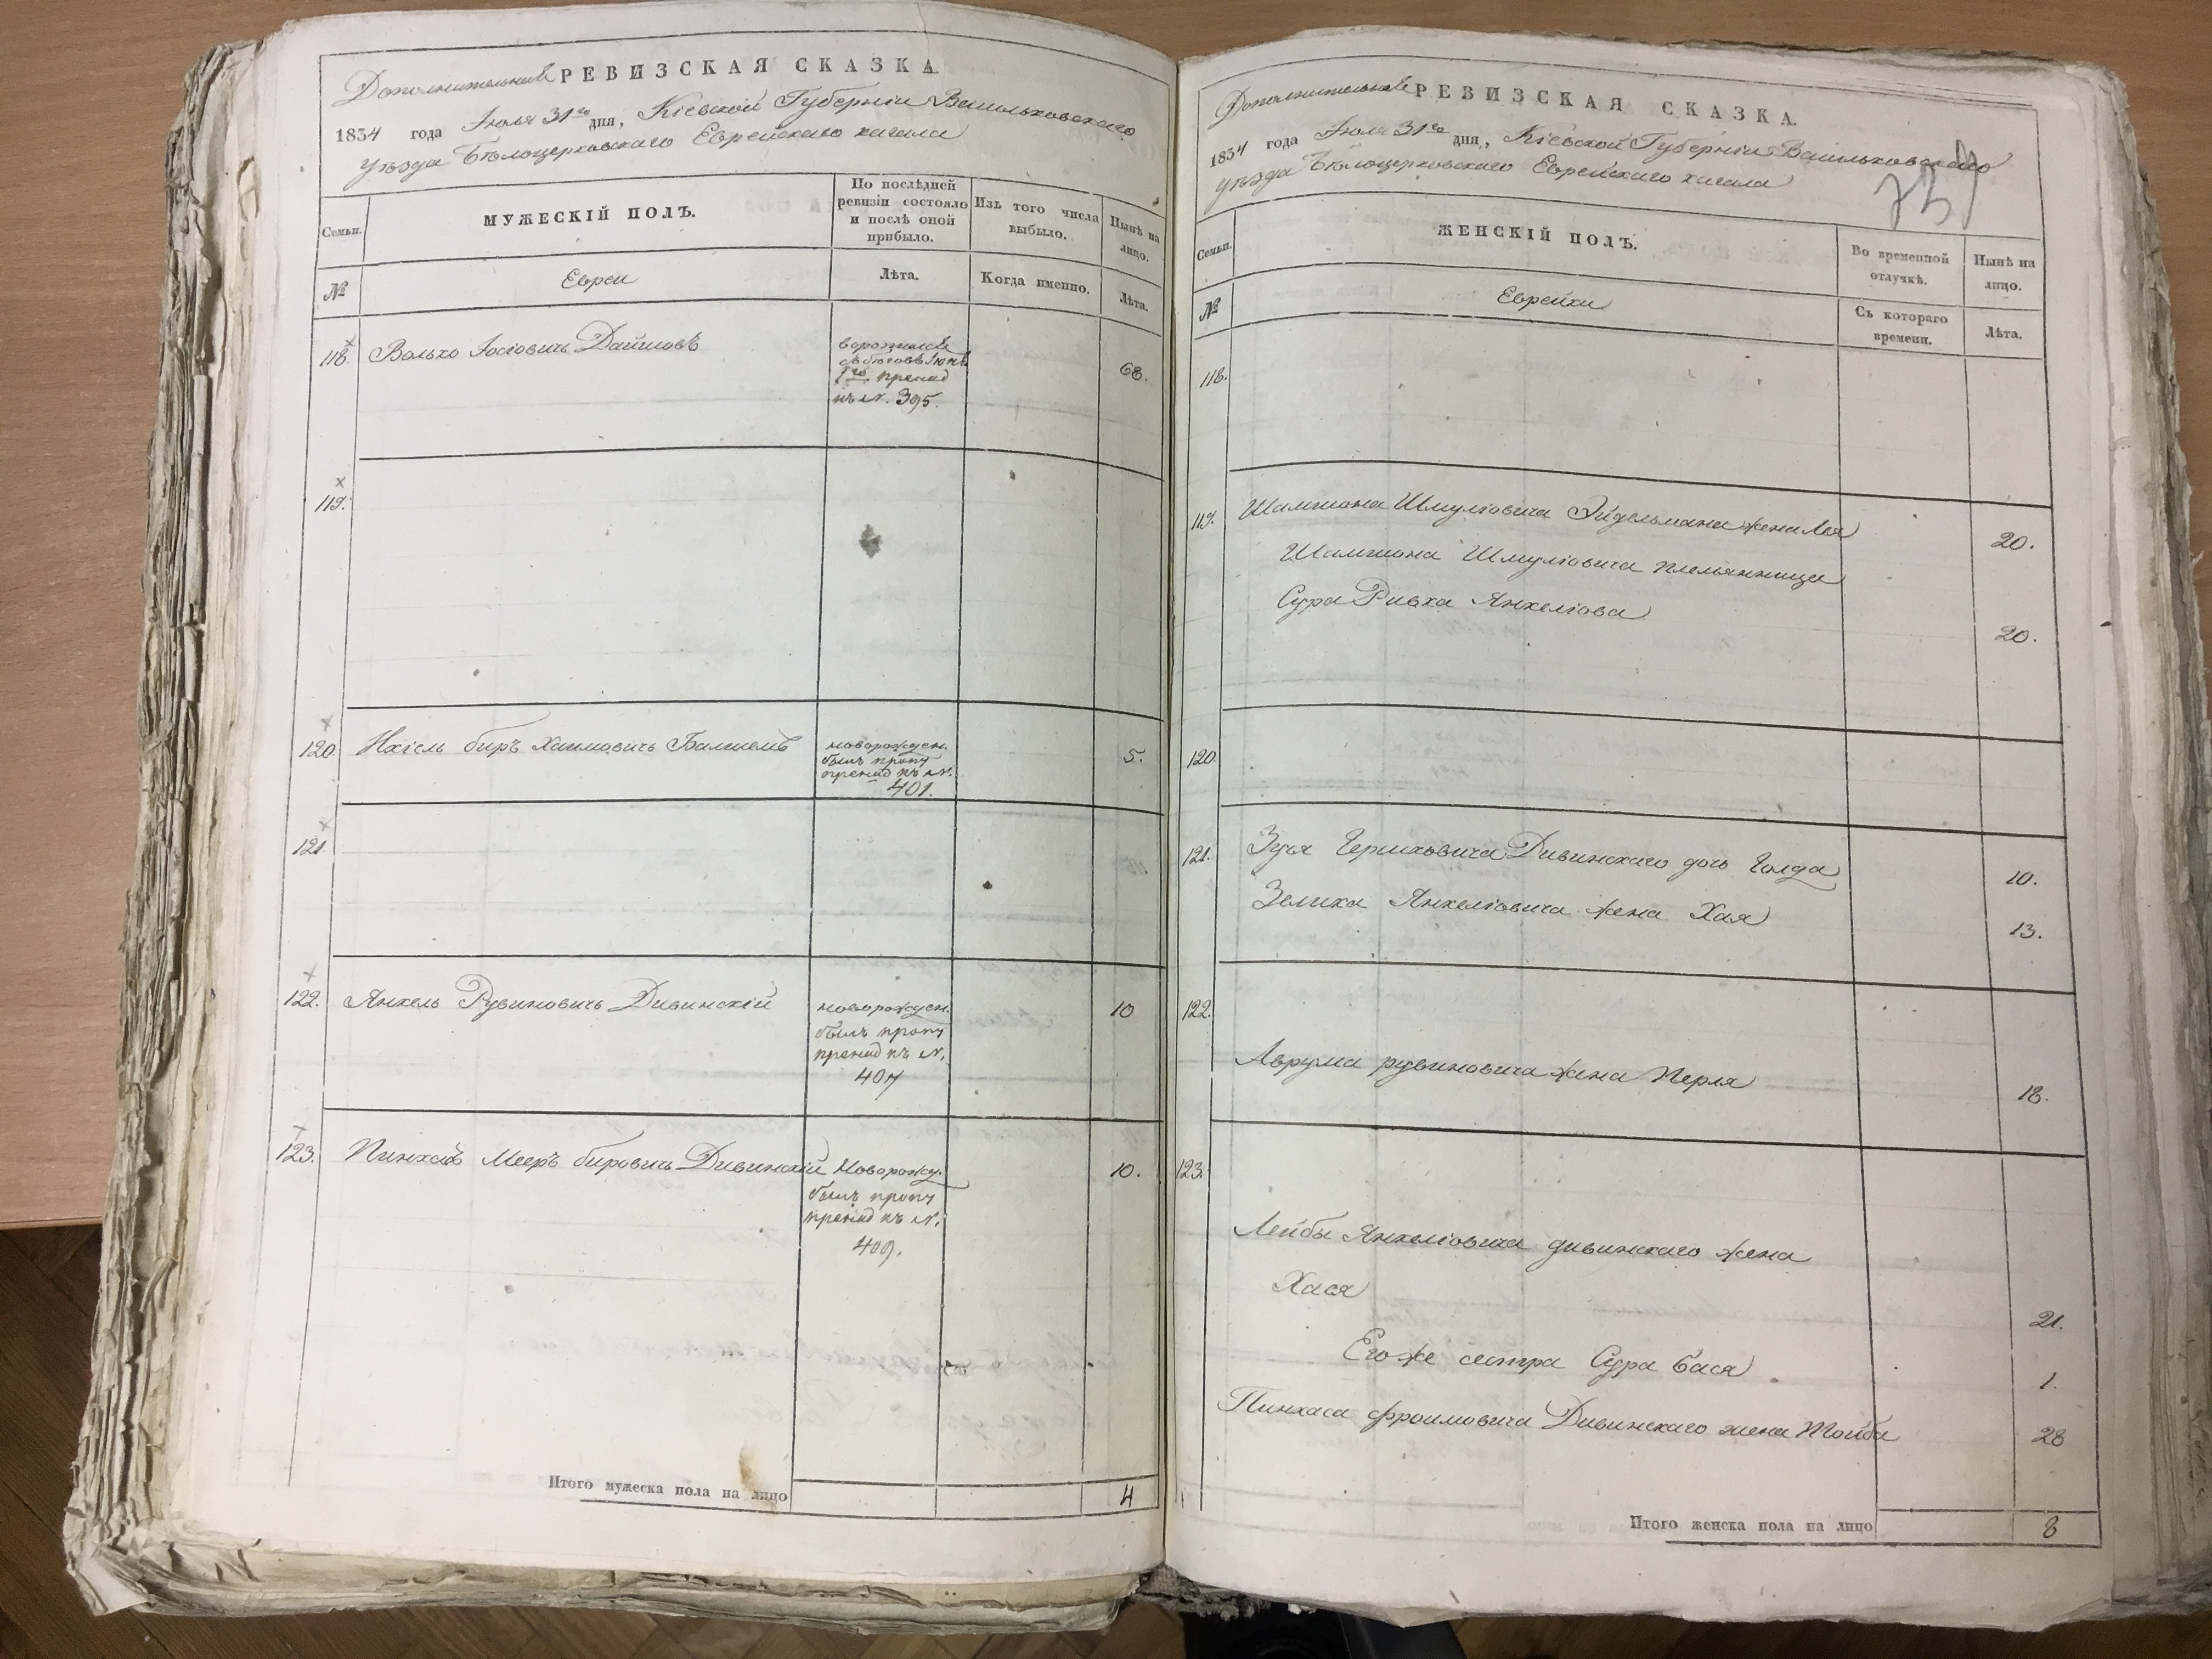 Дополнительная РЕВИЗСКАЯ СКАЗКА
1834 года Іюля 31го дня, Кіевской Губерніи Васильковскаго
уѣзда Бѣлоцерковскаго Еврейскаго кагала
Семьи.
МУЖЕСКІЙ ПОЛЪ.
По послѣдней ревизіи состояло и послѣ оной прибыло.
Изъ того числа выбыло.
Нынѣ на лицо.
№
Евреи
Лѣта.
Когда именно.
Лѣта.
118. Волько Іосіовичь 68.
1го
къ N. 395.
119.
120. Хаимовичь 5.
новорожден.
былъ проп
къ N.
401.
121.
122. Янкель Рувиновичь Дивинскій 10
новорожден.
былъ проп
къ N.
407
123. Пинхасъ Мееръ Бировичь Дивинскій 10.
Новорожд.
былъ проп
къ N.
409.
Итого мужеска пола на лицо 4
Дополнительная РЕВИЗСКАЯ СКАЗКА.
1834 года Іюля 31го дня, Кіевской Губерніи Васильковскаго
уѣзда Бѣлоцерковскаго Еврейскаго кагала
Семьи.
ЖЕНСКІЙ ПОЛЪ.
Во временной отлучкѣ.
Нынѣ на лицо.
№
Еврейки
Съ котораго времени.
Лѣта.
118.
119. Шамшона Шмуліовича Эйдельмана жена Лея 20.
Шамшона Шмуліовича племянница
Сура Ривка Янкеліова 20.
120.
121. Зуся Гершковича Дивинскаго дочь Голда 10.
Зелика Янкеліовича жена Хая 13.
122.
Аврума рувиновича жена Перля 18.
123.
Лейбы Янкеліовича дивинскаго жена
Хася 21.
Его же сестра Сура Бася 1.
Пинхаса фроимовича Дивинскаго жена Тойба 28
Итого женска пола на лицо 8